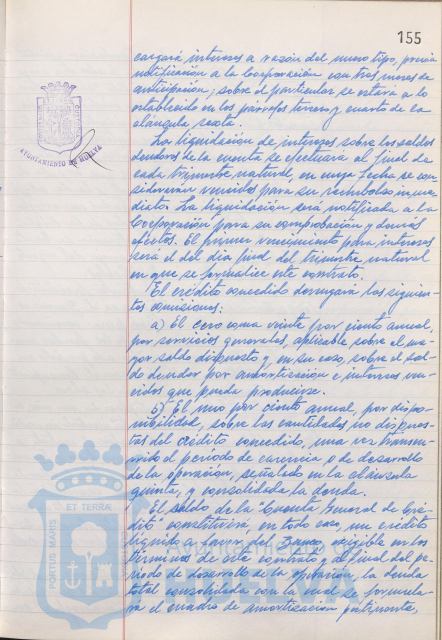 155
cargará intereses a razón del nuevo tipo, previa
notificación a la Corporación con tres meses de
anticipación, sobre el particular se estará a lo
establecido en los párrafos tercero y cuarto de la
cláusula sexta.
La liquidación de intereses sobre los saldos
deudores de la cuenta se efectuará al final de
cada trimestre natural, en cuya fecha se con
siderarán vencidos para su reembolso inme
diato. La liquidación será notificada a la
Corporación para su comprobación y demás
efectos. El primer vencimiento para intereses
será el del día final del trimestre natural
en que se formalice este contrato.
El crédito concedido devengará las siguien
tes comisiones:
a) El cero coma veinte por ciento anual,
por servicios generales, aplicable sobre el ma
yor saldo dispuesto y, en su caso, sobre el sal
do deudor por amortización e intereses ven
cidos que pueda producirse.
b) El uno por ciento anual, por dispo
nibilidad, sobre las cantidades no dispues
tas del crédito concedido, una vez transcu
rrido el período de carencia o de desarrollo
de la operación, señalado en la cláusula
quinta, y consolidada la deuda.
El saldo de la "Cuenta General de Cré
dito" constituirá, en todo caso, un crédito
líquido a favor del Banco, exigible en los
términos de este contrato, y al final del pe
ríodo de desarrollo de la operación, la deuda
total consolidada con la cual se formula
rá el cuadro de amortización pertinente,
AYUNTAMIENTO DE HUELVA
PORTUS MARIS ET TERRAE
Ayuntamiento de
HUELVA